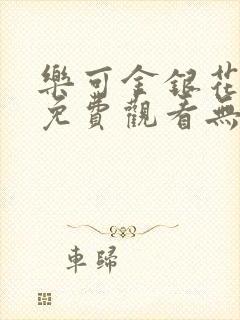 樂可金銀花
免費觀看無
車歸